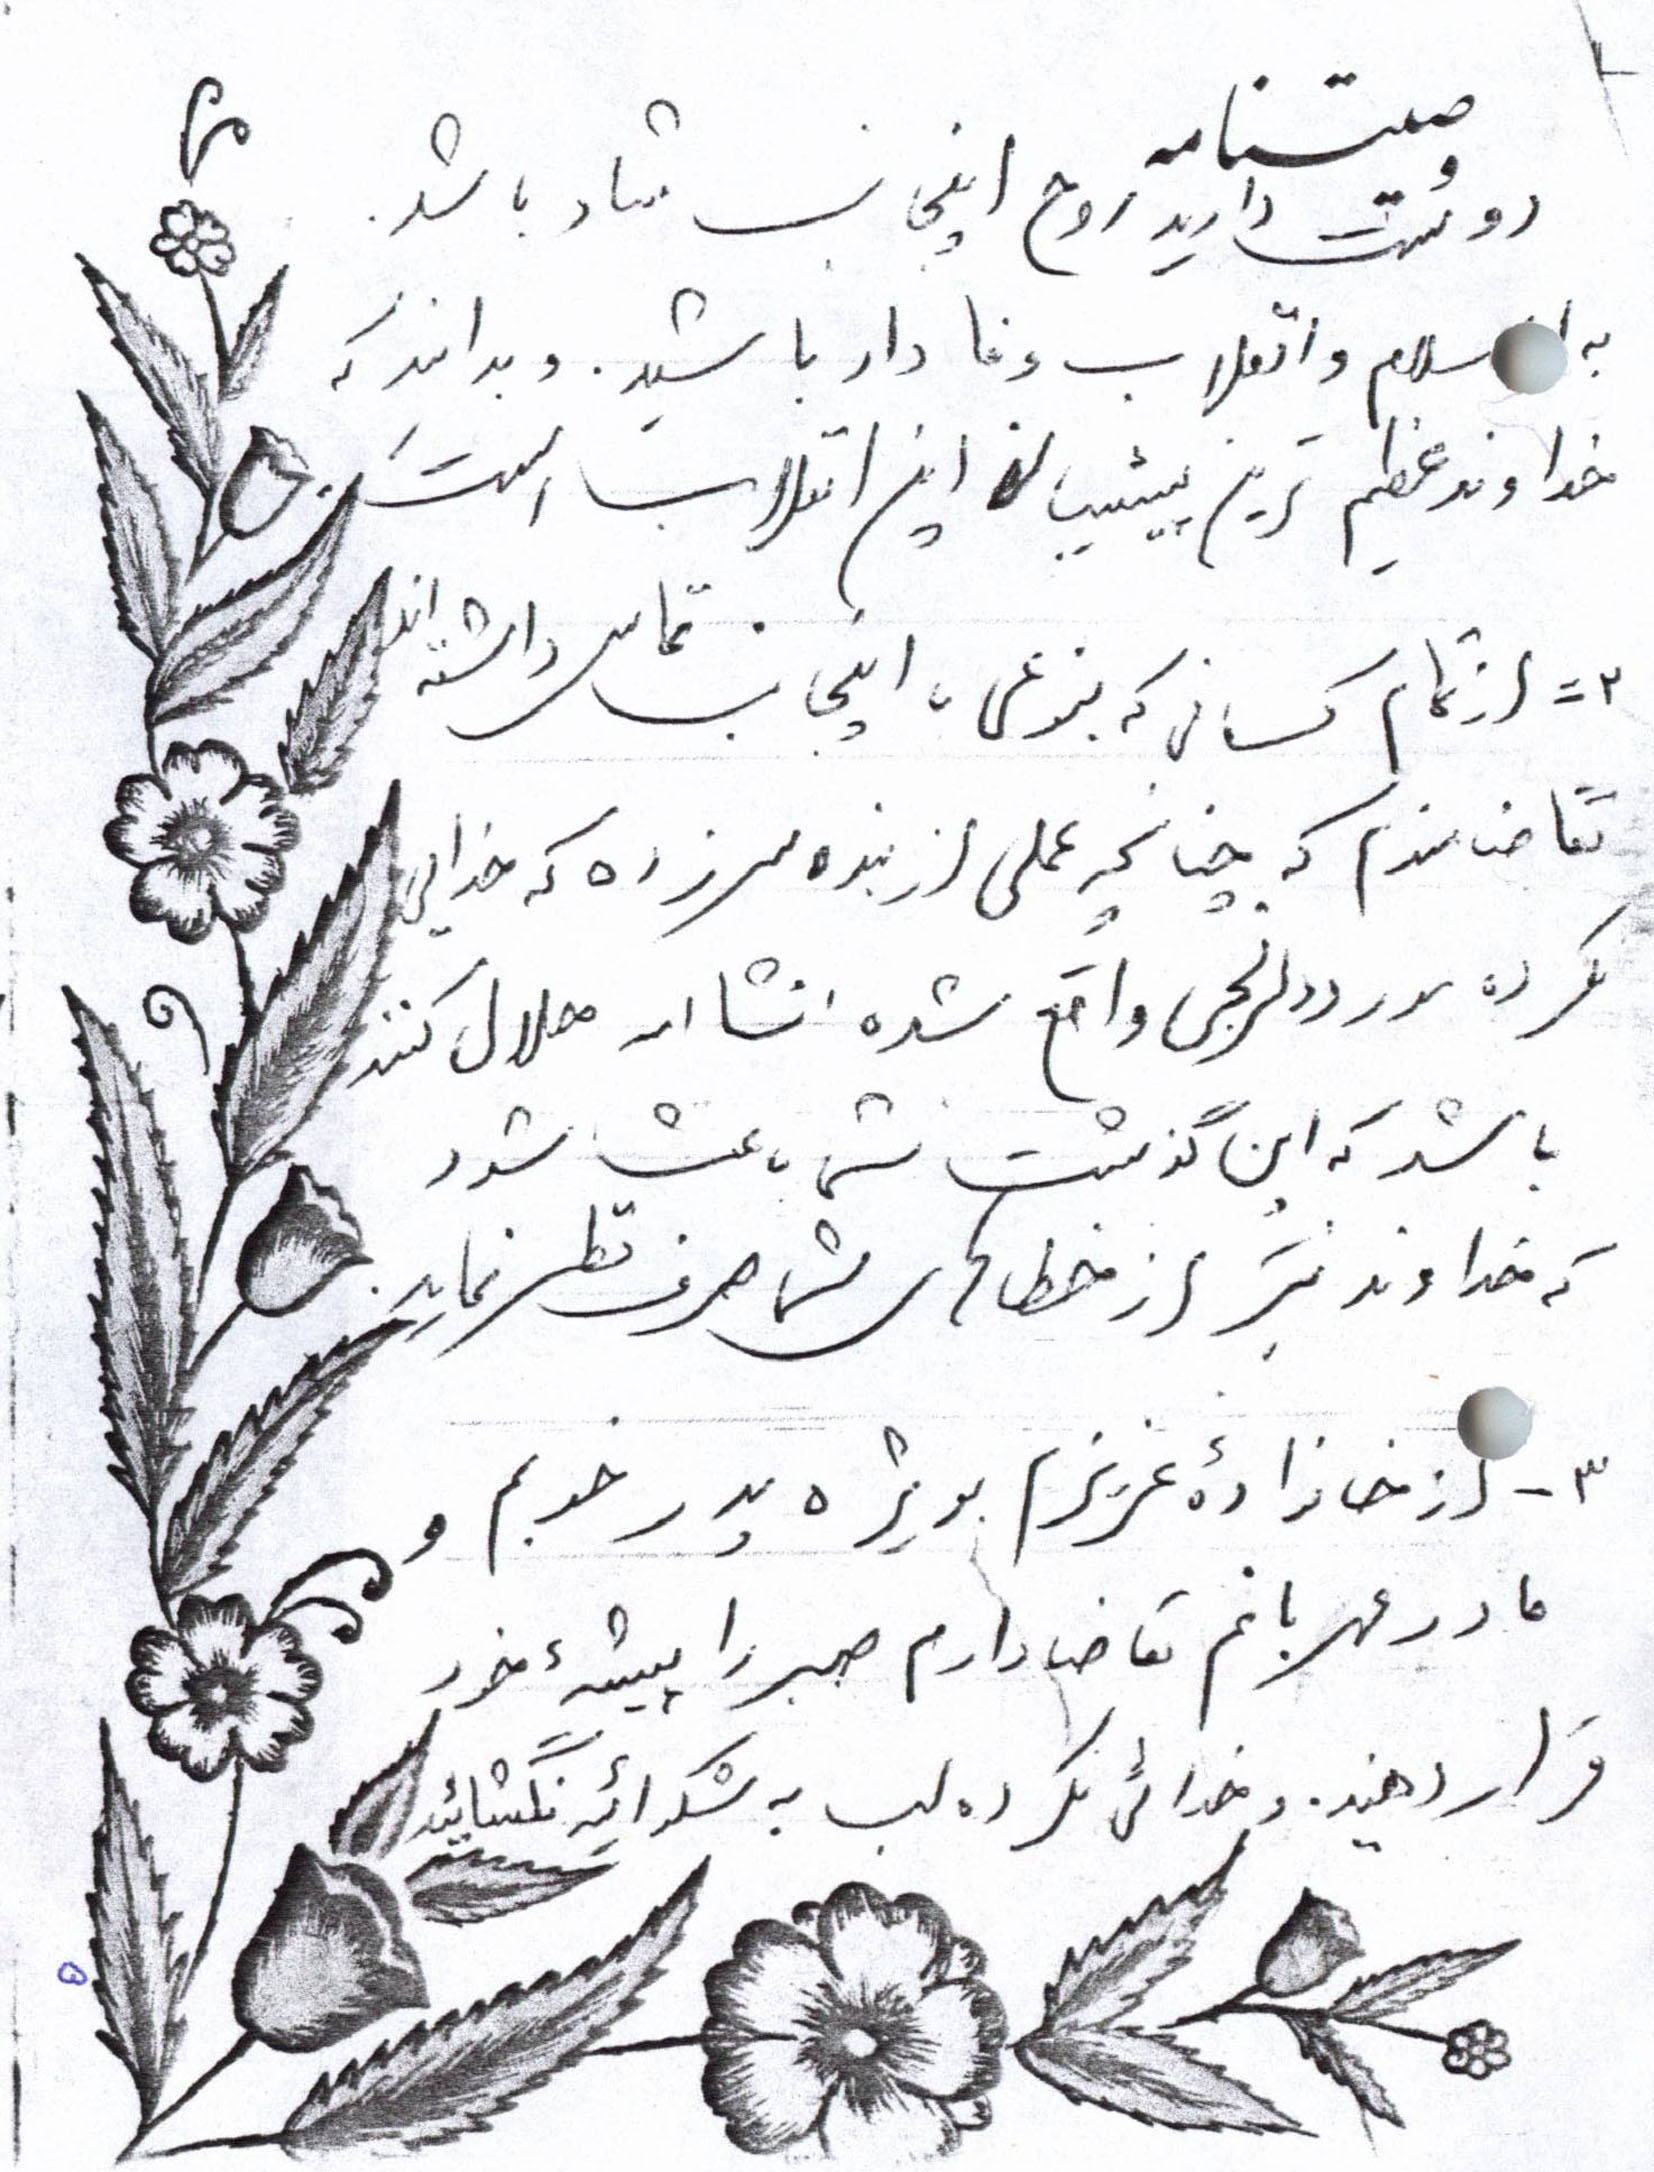 وصیتنامه
دوست دارید روح اینجانب شاد باشد.
به اسلام و انقلاب وفادار باشید. و بدانید که
خداوند عظیم ترین پشتیبان این انقلاب است.
۲= از تمام کسانی که بنوعی با اینجانب تماس داشته اند
تقاضامندم که چنانچه عملی از بنده سرزده که خدایی
نکرده مورد رنجش واقع شده انشااله حلال کنند
باشد که این گذشت شما باعث شود
که خداوند نیز از خطاهای شما صرف نظر نماید.
۳- از خانوادهٔ عزیزم بویژه پدر خوبم و
مادر مهربانم تقاضا دارم صبر را پیشهٔ خود
قرار دهید. و خدائی نکرده لب به شکوائیه نگشائید
۵